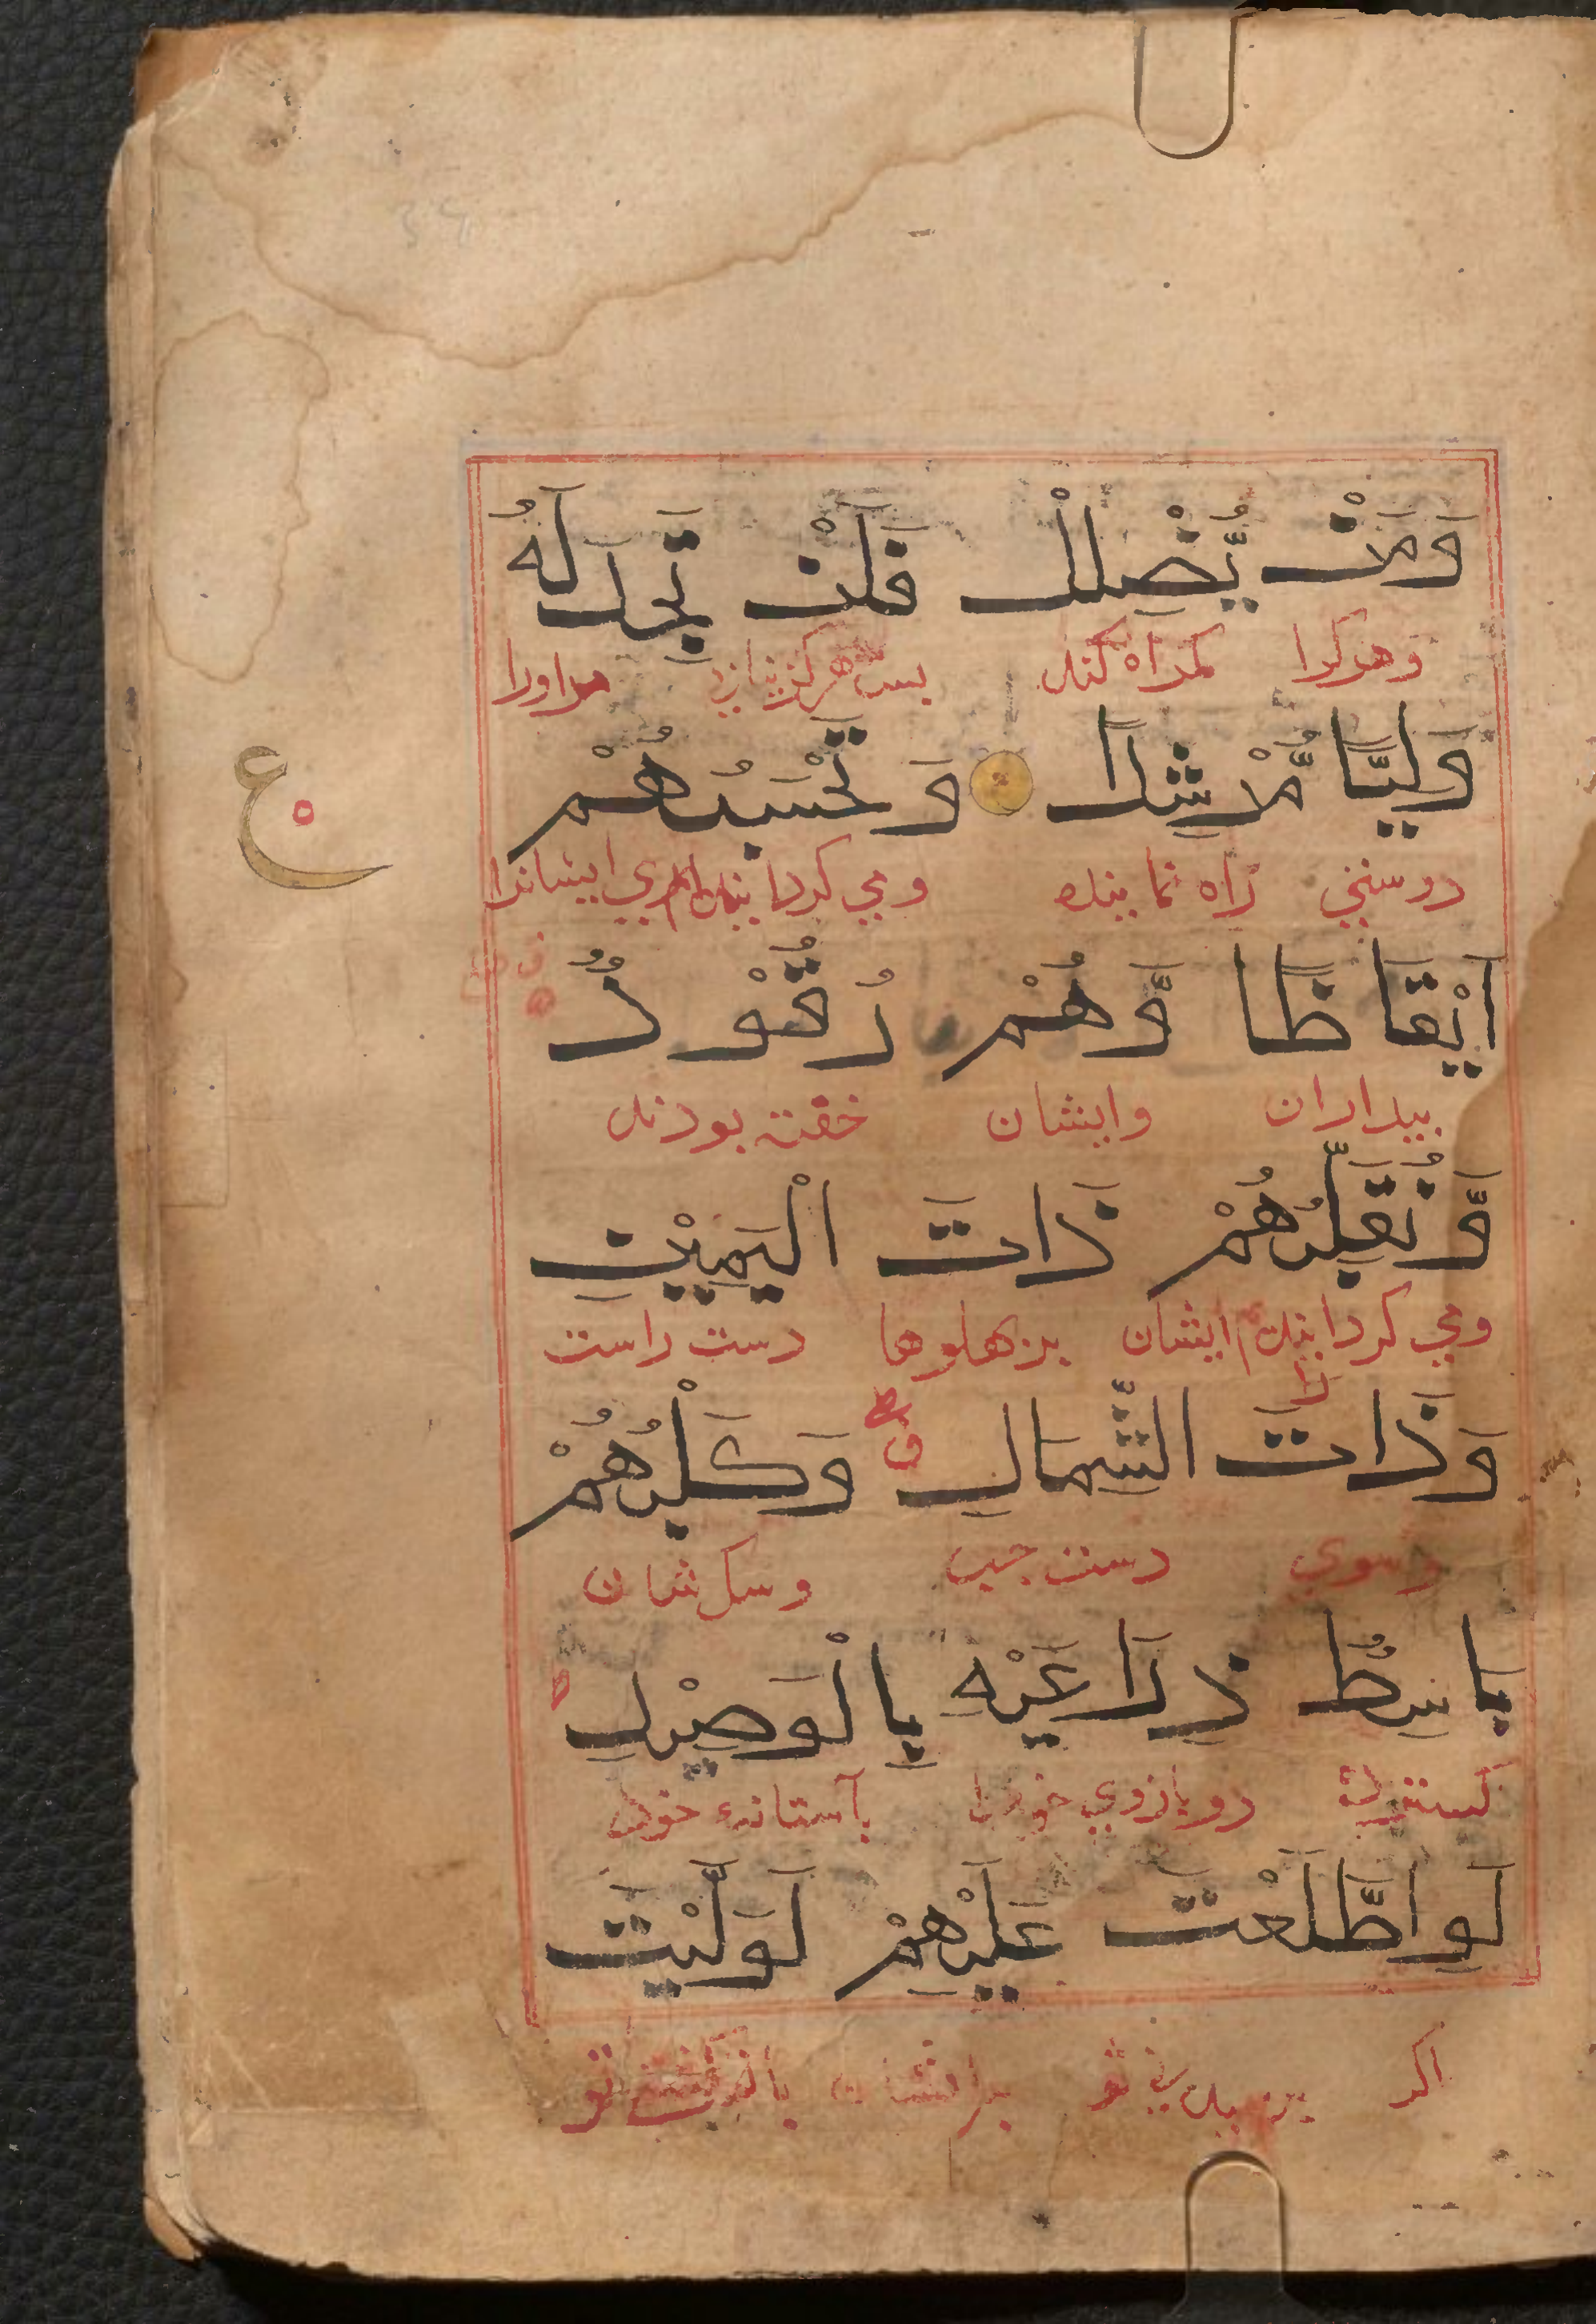 وَمَنْ يُّضْلِلْ فَلَنْ تَجِدَ لَهُ
وهركرا كمراه كند بس هركز نيابي مراورا
وَلِيًّا مُّرْشِدًا وَتَحْسَبُهُمْ
ع
دوستي راه نماينده ومي ايشانرا
اَيْقَاظًا وَّهُمْ رُقُوْدٌ
بيداران وايشان خفته بودند
وَّنُقَلِّبُهُمْ ذَاتَ الْيَمِيْنِ
ومي كردانيدم ايشان را بر بهلوها دست راست
وَذَاتَ الشِّمَالِ وَكَلْبُهُمْ
وسوي دست چپ وسك شان
بَاسِطٌ ذِرَاعَيْهِ بِالْوَصِيْدِ
كسترده دو بازوي خود را بآستانه خود
لَوِ اطَّلَعْتَ عَلَيْهِمْ لَوَلَّيْتَ
اكر تو برايشان تو